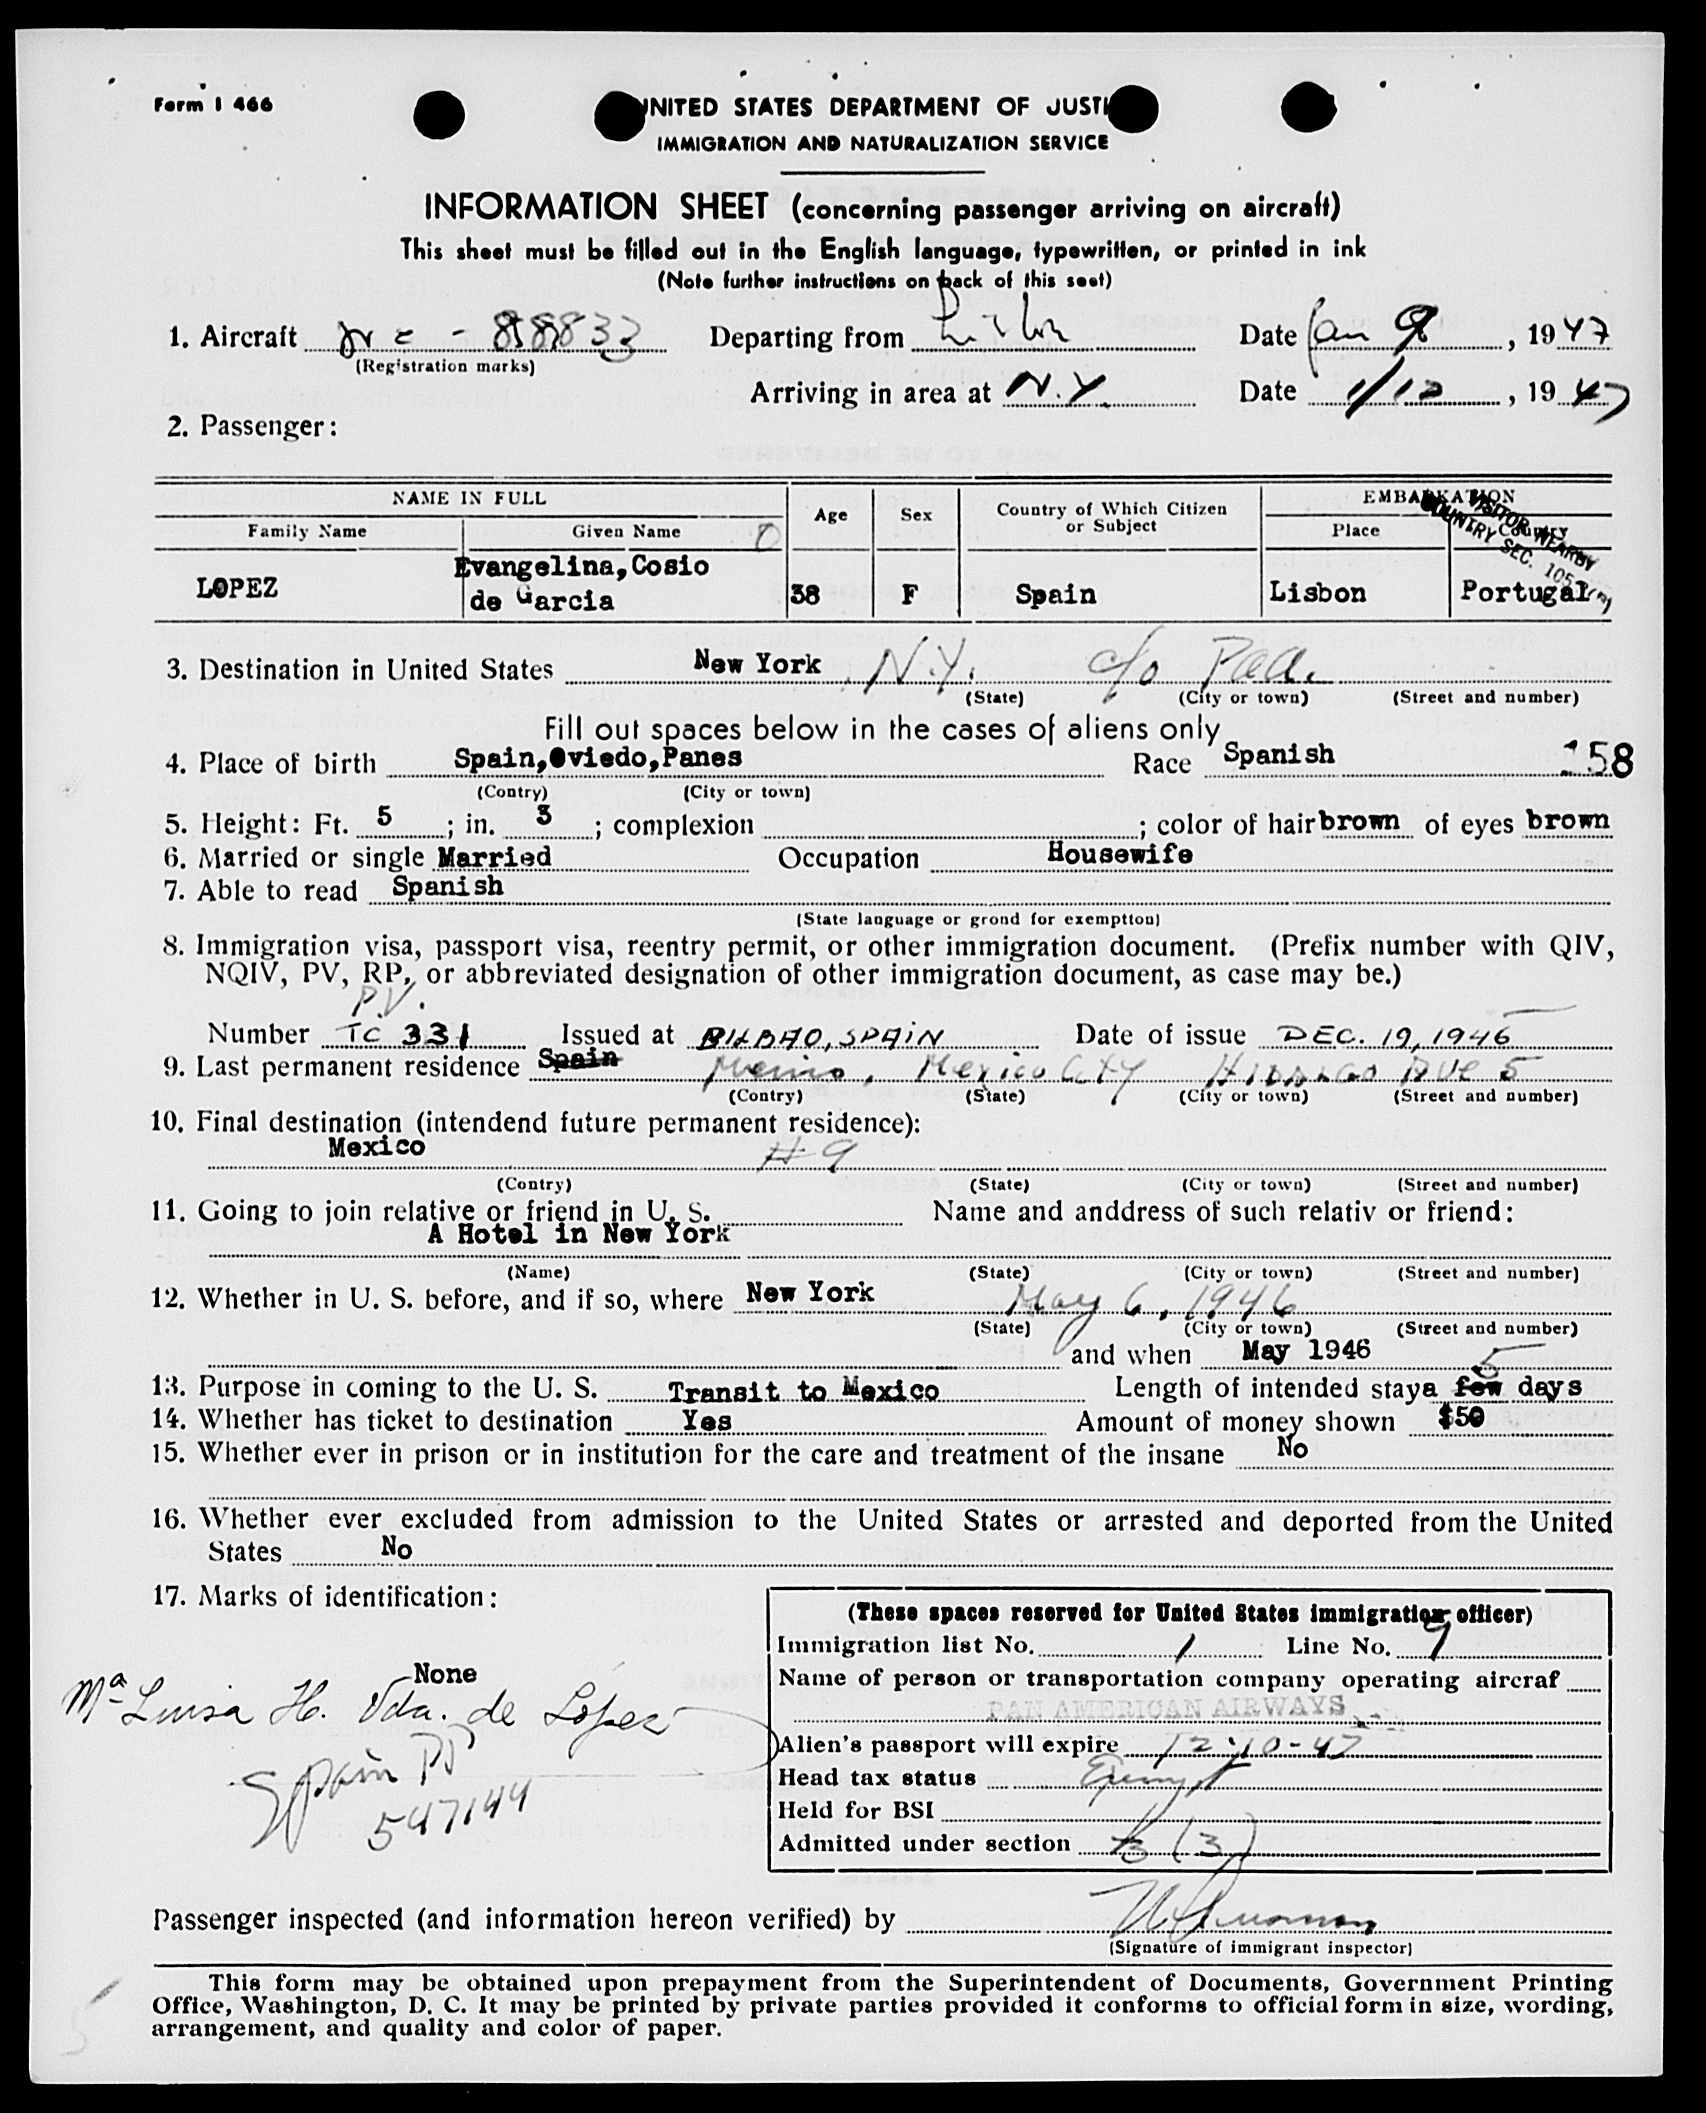 Form I 466
UNITED STATES DEPARTMENT OF JUSTI
IMMIGRATION AND NATURALIZATION SERVICE
INFORMATION SHEET (concerning passenger arriving on aircraft)
This sheet must be filled out in the English language, typewritten, or printed in ink
(Note further instructions on back of this seet)
1. Aircraft nc - 88833 Departing from Lisbn Date Jan 9, 1947
(Registration marks)
Arriving in area at N.Y. Date 1/10, 1947
2. Passenger:
NAME IN FULL Age Sex Country of Which Citizen or Subject EMBARKATION
Family Name Given Name Place Country
VISITOR NEARBY
COUNTRY SEC. 105.3(a)
LOPEZ Evangelina, Cosio de Garcia 38 F Spain Lisbon Portugal
3. Destination in United States New York N.Y. c/o Paa.
(State) (City or town) (Street and number)
Fill out spaces below in the cases of aliens only
4. Place of birth Spain, Oviedo, Panes Race Spanish 158
(Contry) (City or town)
5. Height: Ft. 5; in. 3; complexion ; color of hair brown of eyes brown
6. Married or single Married Occupation Housewife
7. Able to read Spanish
(State language or grond for exemption)
8. Immigration visa, passport visa, reentry permit, or other immigration document. (Prefix number with QIV,
NQIV, PV, RP, or abbreviated designation of other immigration document, as case may be.)
PV.
Number TC 331 Issued at BILBAO, SPAIN Date of issue DEC. 19, 1946
9. Last permanent residence Spain Mexico, Mexico City Hidalgo Ave 5
(Contry) (State) (City or town) (Street and number)
10. Final destination (intendend future permanent residence):
Mexico #9
(Contry) (State) (City or town) (Street and number)
11. Going to join relative or friend in U. S. Name and anddress of such relativ or friend:
A Hotel in New York
(Name) (State) (City or town) (Street and number)
12. Whether in U. S. before, and if so, where New York May 6, 1946
(State) (City or town) (Street and number)
and when May 1946
13. Purpose in coming to the U. S. Transit to Mexico Length of intended stay a few 5 days
14. Whether has ticket to destination Yes Amount of money shown $50
15. Whether ever in prison or in institution for the care and treatment of the insane No
16. Whether ever excluded from admission to the United States or arrested and deported from the United
States No
17. Marks of identification:
None
Mª Luisa H. Vda. de López
Spain PP
547144
(These spaces reserved for United States immigration officer)
Immigration list No. 1 Line No. 9
Name of person or transportation company operating aircraf
PAN AMERICAN AIRWAYS
Alien's passport will expire 12-10-47
Head tax status Exempt
Held for BSI
Admitted under section 3 (3)
Passenger inspected (and information hereon verified) by
(Signature of immigrant inspector)
This form may be obtained upon prepayment from the Superintendent of Documents, Government Printing
Office, Washington, D. C. It may be printed by private parties provided it conforms to official form in size, wording,
arrangement, and quality and color of paper.